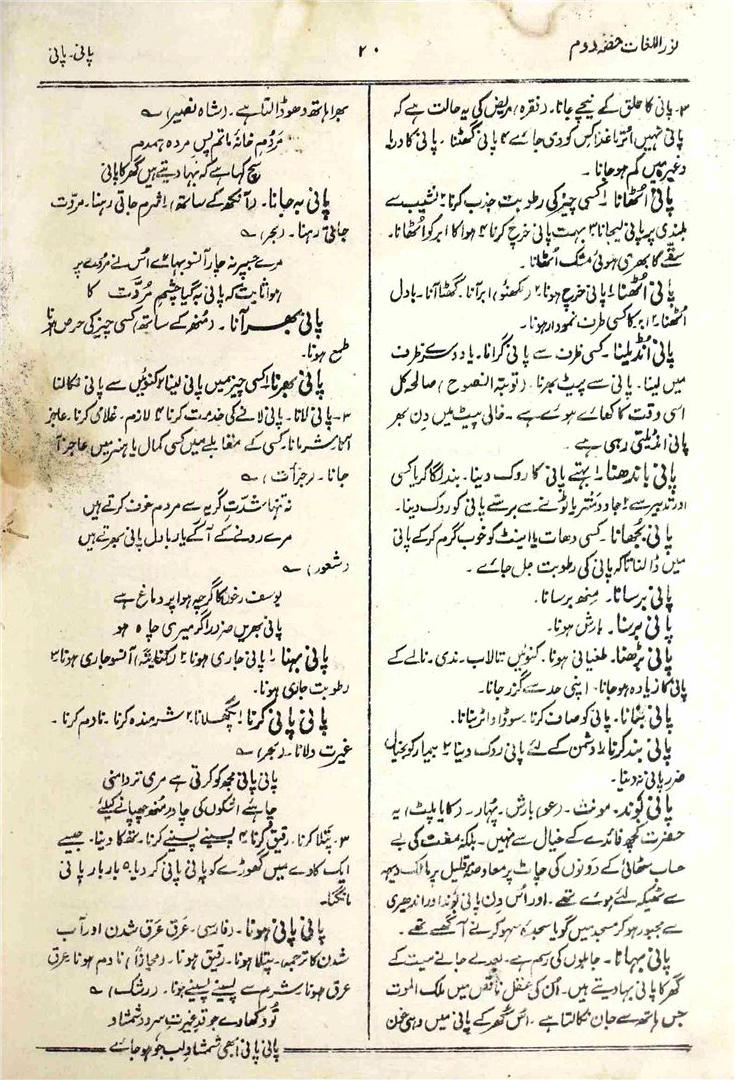 نور اللغات حصّہ دوم
۲۰
پانی۔ پانی
۳۔ پانی کا حلق کے نیچے جانا۔ (فقرہ) مریض کی یہ حالت ہے کہ
پانی نہیں اُترتا غذا کس کو دی جائے ۴ پانی گھٹنا۔ پانی کا دریا
وغیرہ میں کم ہوجانا۔
پانی اُٹھانا ۱ کسی چیز کی رطوبت جذب کرنا ۲ نشیب سے
بلندی پر پانی لیجانا ۳ بہت پانی خرچ کرنا ۴ ہوا کا ابر کو اٹھانا۔
سقے کا بھری ہوئی مشک اُٹھانا۔
پانی اُٹھنا ۱ پانی خرچ ہونا ۲ (لکھنؤ) ابر آنا۔ گھٹا آنا۔ بادل
اُٹھنا۔ ابر کا کسی طرف نمودار ہونا۔
پانی اُنڈیلنا۔ کسی ظرف سے پانی گرانا۔ یا دوسرے ظرف
میں لینا۔ پانی سے پیٹ بھرنا۔ (توبۃ النصوح) صالحہ کل
اسی وقت کا کھائے ہوئے ہے۔ خالی پیٹ میں دن بھر
پانی انڈیلتی رہی ہے۔
پانی باندھنا ۱ بہتے پانی کا روک دینا۔ بند لگا کر یا کسی
اور تدبیر سے ۲ جادو منتر یا ٹونے سے برستے پانی کو روک دینا۔
پانی بُجھانا۔ کسی دھات یا اینٹ کو خوب گرم کرکے پانی
میں ڈالنا تاکہ پانی کی رطوبت جل جائے۔
پانی برسانا۔ مِنھ برسانا۔
پانی برسنا۔ بارش ہونا۔
پانی بڑھنا۔ طغیانی ہونا۔ کنوئیں تالاب۔ ندی۔ نالے کے
پانی کا زیادہ ہوجانا۔ اپنی حد سے گزر جانا۔
پانی بنانا۔ پانی کو صاف کرنا۔ سوڈا واٹر بنانا۔
پانی بند کرنا ۱ دشمن کے لئے پانی روک دینا ۲ بیمار کو بخیال
ضرر پانی نہ دینا۔
پانی بُوند۔ مونث۔ (عو) بارش۔ پُہار۔ (کایا پلٹ) یہ
حضرت کچھ فائدے کے خیال سے نہیں۔ بلکہ مفت کی بے
حساب مٹھائی کے دَونوں کی چاٹ پر معاوضۂ قلیل پر مالک دیہہ
سے ٹھیکہ لئے ہوئے تھے۔ اور اُس دن پانی بُوند اور اندھیری
سے مجبور ہوکر مسجد میں گویا سجدۂ سہو کرنے آ گئے تھے۔
پانی بہانا۔ جاہلوں کی رسم ہے۔ بعد لے جانے میت کے
گھر کا پانی بہا دیتے ہیں۔ اُن کی عقل ناقص میں ملک الموت
جس ہاتھ سے جان نکالتا ہے۔ اُس گھر کے پانی میں وہی خون
بھرا ہاتھ دھو ڈالتا ہے۔ (شاہ نصیر) ؎
مردُمِ خانہ ماتم پسِ مردہ ہمدم
سچ کہا ہے کہ بہا دیتے ہیں گھر کا پانی
پانی بہ جانا۔ (آنکھ کے ساتھ) شرم جاتی رہنا۔ مروّت
جاتی رہنا۔ (بحر) ؎
مرے جیپر نہ چار آنسو بہائے اُس نے مردے پر
ہوا ثابت کہ پانی بہ گیا چشمِ مُروّت کا
پانی بھر آنا۔ (منھ کے ساتھ) کسی چیز کی حرص ہونا
طمع ہونا۔
پانی بھرنا ۱ کسی چیز میں پانی لینا ۲ کنوئیں سے پانی نکالنا
۳۔ پانی لانا۔ پانی لانے کی خدمت کرنا ۴ لازم۔ غلامی کرنا۔ عاجز
آنا۔ شرمانا۔ کسی کے مقابلے میں کسی کمال یا ہنر میں عاجز آ
جانا۔ (جرأت) ؎
نہ تنہا شدّتِ گریہ سے مردم خوف کرتے ہیں
مرے رونے کے آگے یار بادل پانی بھرتے ہیں
(شعور) ؎
یوسف رخوں کا گرچہ ہوا پر دماغ ہے
پانی بھریں ضرر اگر میری چاہ ہو
پانی بہنا ۱ پانی جاری ہونا ۲ (کنایۃً) آنسو جاری ہونا ۳
رطوبت جاری ہونا۔
پانی پانی کرنا ۱ پگھلانا ۲ شرمندہ کرنا۔ نادم کرنا۔
غیرت دلانا۔ (بحر) ؎
پانی پانی مجھ کو کرتی ہے مری تر دامنی
چاہئے اشکوں کی چادر منھ چھپانے کیلئے
۳۔ پتلا کرنا۔ رقیق کرنا ۴ پسینے پسینے کرنا۔ تھکا دینا۔ جیسے
ایک کاوے میں گھوڑے کو پانی پانی کر دیا ۵ بار بار پانی
مانگنا۔
پانی پانی ہونا۔ (فارسی۔ عَرق عَرق شدن اور آب
شدن کا ترجمہ) پتلا ہونا۔ رقیق ہونا۔ (مجازاً) نادم ہونا عَرق
عرق ہونا شرم سے پسینے پسینے ہونا۔ (رشک) ؎
تو دکھا دے جو قدِ غیرتِ سرو و شمشاد
پانی پانی ابھی شمشاد لبِ جو ہو جائے